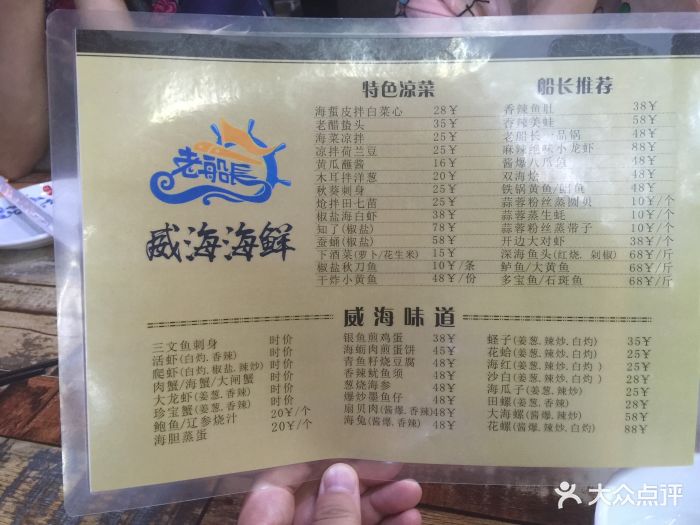 老船長
威海海鲜
特色凉菜
海蜇皮拌白菜心 28¥
老醋蛰头 35¥
海菜凉拌 25¥
凉拌荷兰豆 25¥
黄瓜蘸酱 16¥
木耳拌洋葱 20¥
秋葵刺身 25¥
炝拌田七苗 25¥
椒盐海白虾 38¥
知了(椒盐) 78¥
蚕蛹(椒盐) 58¥
下酒菜(萝卜/花生米) 15¥
椒盐秋刀鱼 10¥/条
干炸小黄鱼 48¥/份
船长推荐
香辣鱼肚 38¥
香辣美蛙 58¥
老船长一品锅 48¥
麻辣绝味小龙虾 88¥
酱爆八爪鱼 48¥
双海烩 48¥
铁锅黄鱼/鲳鱼 48¥
蒜蓉粉丝蒸圆贝 10¥/个
蒜蓉蒸生蚝 10¥/个
蒜蓉粉丝蒸带子 10¥/个
开边大对虾 38¥
深海鱼头(红烧.剁椒) 68¥/斤
鲈鱼/大黄鱼 68¥/斤
多宝鱼/石斑鱼 68¥/斤
威海味道
三文鱼刺身 时价
活虾(白灼.香辣) 时价
爬虾(白灼.椒盐.辣炒) 时价
肉蟹/海蟹/大闸蟹 时价
大龙虾(姜葱.香辣) 时价
珍宝蟹(姜葱.香辣) 时价
鲍鱼/辽参烧汁 20¥/个
海胆蒸蛋 20¥/个
银鱼煎鸡蛋 38¥
海蛎肉煎蛋饼 45¥
青鱼籽烧豆腐 48¥
香辣鱿鱼须 48¥
葱烧海参 48¥
爆炒墨鱼仔 48¥
扇贝肉(酱爆.香辣) 48¥
海兔(酱爆.香辣) 48¥
蛏子(姜葱.辣炒.白灼) 35¥
花蛤(姜葱.辣炒.白灼) 25¥
海红(姜葱.辣炒.白灼) 25¥
沙白(姜葱.辣炒.白灼) 28¥
海瓜子(姜葱.辣炒) 25¥
田螺(姜葱.香辣) 28¥
大海螺(酱爆.辣炒) 58¥
花螺(酱爆.辣炒.白灼) 88¥
大众点评